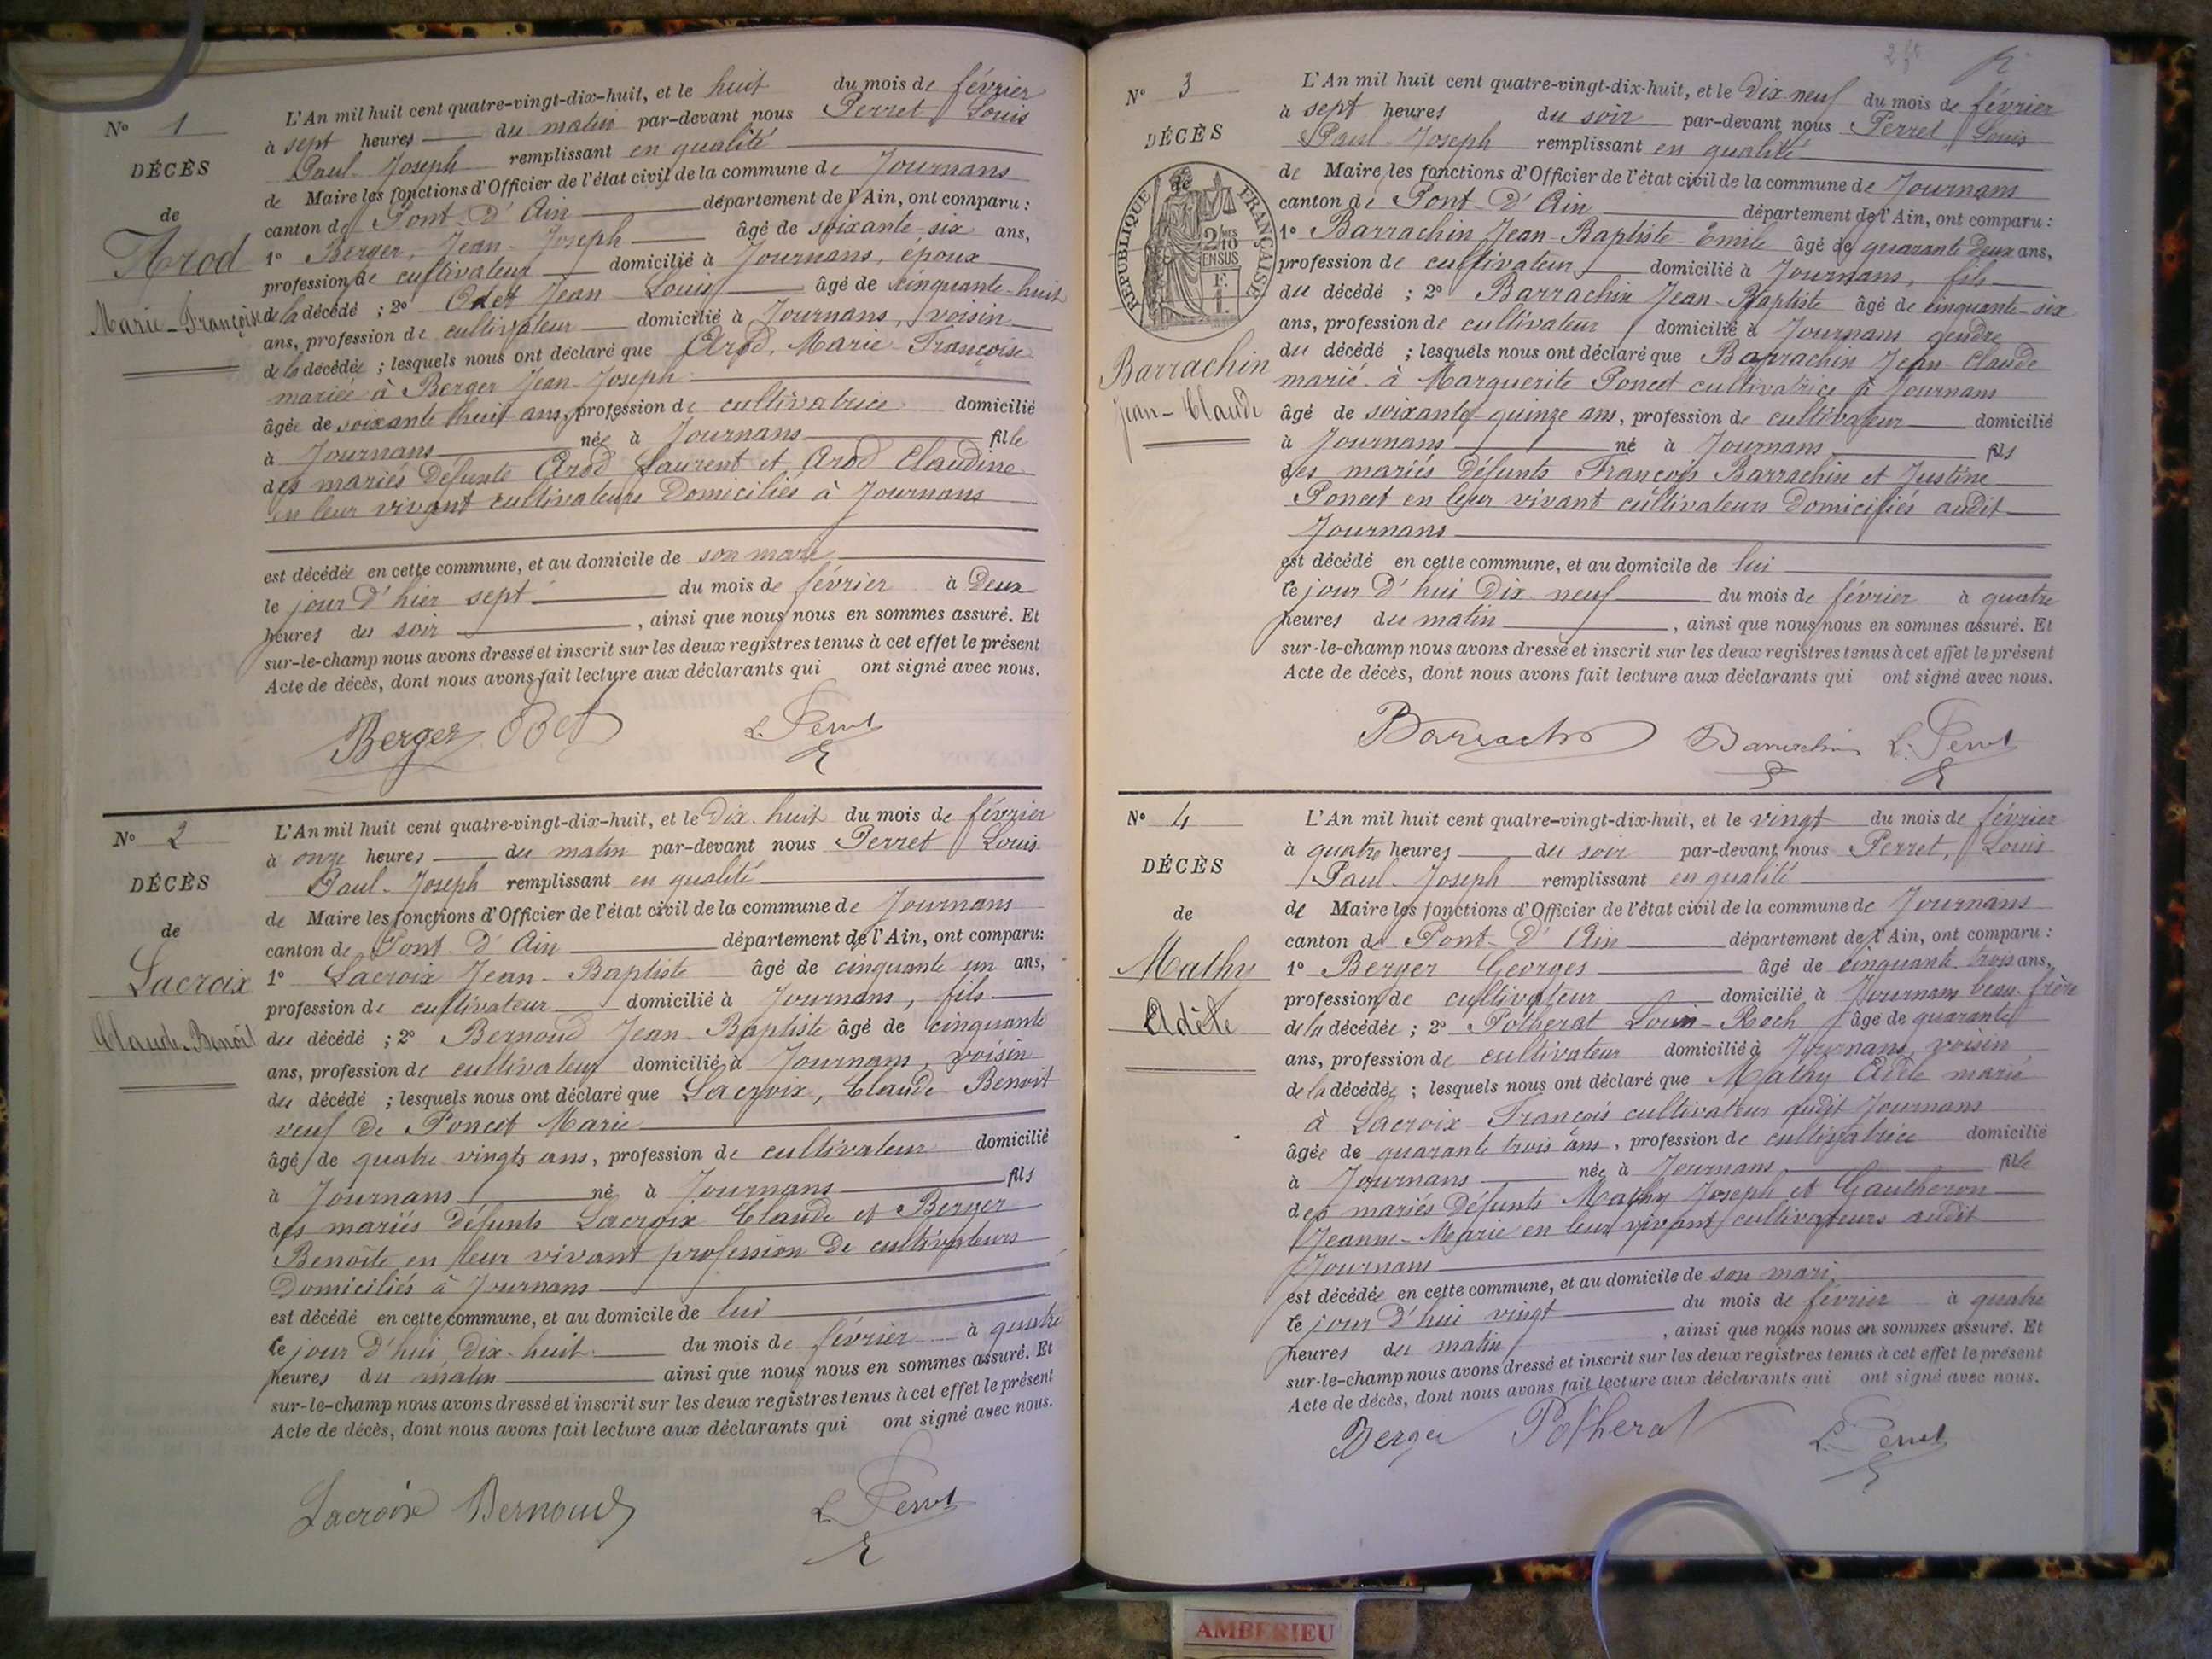 N° 1
DÉCÈS
de
Arod
Marie-Françoise
L'An mil huit cent quatre-vingt-dix-huit, et le huit du mois de février
à sept heures du matin par-devant nous Perret Louis
Paul-Joseph remplissant en qualité
de Maire les fonctions d'Officier de l'état civil de la commune de Journans
canton de Pont-d'Ain département de l'Ain, ont comparu :
1° Berger, Jean-Joseph âgé de soixante-six ans,
profession de cultivateur domicilié à Journans, époux
de la décédé ; 2° Odet Jean Louis âgé de cinquante-huit
ans, profession de cultivateur domicilié à Journans, voisin
de la décédée ; lesquels nous ont déclaré que Arod, Marie-Françoise
mariée à Berger Jean-Joseph
âgée de soixante huit ans, profession de cultivatrice domicilié
à Journans née à Journans fille
des mariés défunts Arod Laurent et Arod Claudine
en leur vivant cultivateurs domiciliés à Journans
est décédée en cette commune, et au domicile de son mari
le jour d'hier sept du mois de février à deux
heures du soir, ainsi que nous nous en sommes assuré. Et
sur-le-champ nous avons dressé et inscrit sur les deux registres tenus à cet effet le présent
Acte de décès, dont nous avons fait lecture aux déclarants qui ont signé avec nous.
Berger Odet L. Perret
N° 2
DÉCÈS
de
Lacroix
Claude-Benoît
L'An mil huit cent quatre-vingt-dix-huit, et le dix-huit du mois de février
à onze heures du matin par-devant nous Perret Louis
Paul-Joseph remplissant en qualité
de Maire les fonctions d'Officier de l'état civil de la commune de Journans
canton de Pont d'Ain département de l'Ain, ont comparu:
1° Lacroix Jean-Baptiste âgé de cinquante un ans,
profession de cultivateur domicilié à Journans, fils
du décédé ; 2° Bernoud Jean-Baptiste âgé de cinquante
ans, profession de cultivateur domicilié à Journans, voisin
du décédé ; lesquels nous ont déclaré que Lacroix, Claude Benoit
veuf de Poncet Marie
âgé de quatre vingts ans, profession de cultivateur domicilié
à Journans né à Journans fils
des mariés défunts Lacroix Claude et Berger
Benoîte en leur vivant profession de cultivateurs
domiciliés à Journans
est décédé en cette commune, et au domicile de lui
Ce jour d'hui dix-huit du mois de février à quatre
heures du matin ainsi que nous nous en sommes assuré. Et
sur-le-champ nous avons dressé et inscrit sur les deux registres tenus à cet effet le présent
Acte de décès, dont nous avons fait lecture aux déclarants qui ont signé avec nous.
Lacroix Bernoud L. Perret
N° 3
DÉCÈS
de
RÉPUBLIQUE FRANÇAISE
2/10
EN SUS
Barrachin
Jean-Claude
L'An mil huit cent quatre-vingt-dix-huit, et le dix-neuf du mois de février
à sept heures du soir par-devant nous Perret Louis
Paul-Joseph remplissant en qualité
de Maire les fonctions d'Officier de l'état civil de la commune de Journans
canton de Pont-d'Ain département de l'Ain, ont comparu :
1° Barrachin Jean-Baptiste-Emile âgé de quarante deux ans,
profession de cultivateur domicilié à Journans, fils
du décédé ; 2° Barrachin Jean-Baptiste âgé de cinquante-six
ans, profession de cultivateur domicilié à Journans gendre
du décédé ; lesquels nous ont déclaré que Barrachin Jean Claude
marié à Marguerite Poncet cultivatrice à Journans
âgé de soixante-quinze ans, profession de cultivateur domicilié
à Journans né à Journans fils
des mariés défunts François Barrachin et Justine
Poncet en leur vivant cultivateurs domiciliés audit
Journans
est décédé en cette commune, et au domicile de lui
Ce jour d'hui dix-neuf du mois de février à quatre
heures du matin, ainsi que nous nous en sommes assuré. Et
sur-le-champ nous avons dressé et inscrit sur les deux registres tenus à cet effet le présent
Acte de décès, dont nous avons fait lecture aux déclarants qui ont signé avec nous.
Barrachin Barrachin L. Perret
N° 4
DÉCÈS
de
Mathy
Adèle
L'An mil huit cent quatre-vingt-dix-huit, et le vingt du mois de février
à quatre heures du soir par-devant nous Perret, Louis
Paul-Joseph remplissant en qualité
de Maire les fonctions d'Officier de l'état civil de la commune de Journans
canton de Pont-d'Ain département de l'Ain, ont comparu :
1° Berger Georges âgé de cinquante-trois ans,
profession de cultivateur domicilié à Journans beau-frère
de la décédée ; 2° Potherat Louis-Roch âgé de quarante
ans, profession de cultivateur domicilié à Journans, voisin
de la décédée ; lesquels nous ont déclaré que Mathy Adèle marié
à Lacroix François cultivateur audit Journans
âgée de quarante trois ans, profession de cultivatrice domicilié
à Journans née à Journans fille
des mariés défunts Mathy Joseph et Gautheron
Jeanne-Marie en leur vivant cultivateurs audit
Journans
est décédée en cette commune, et au domicile de son mari
Ce jour d'hui vingt du mois de février à quatre
heures du matin, ainsi que nous nous en sommes assuré. Et
sur-le-champ nous avons dressé et inscrit sur les deux registres tenus à cet effet le présent
Acte de décès, dont nous avons fait lecture aux déclarants qui ont signé avec nous.
Berger Potherat L. Perret
AMBERIEU